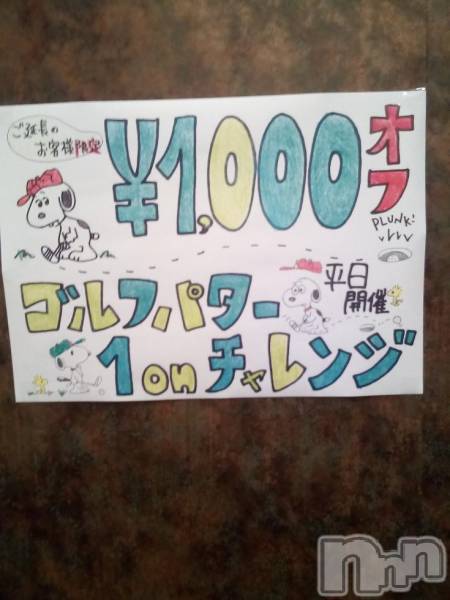 ご延長の
お客様限定
¥1,000
オフ
PLUNK!
ゴルフパター
平日
開催
1onチャレンジ
nnn